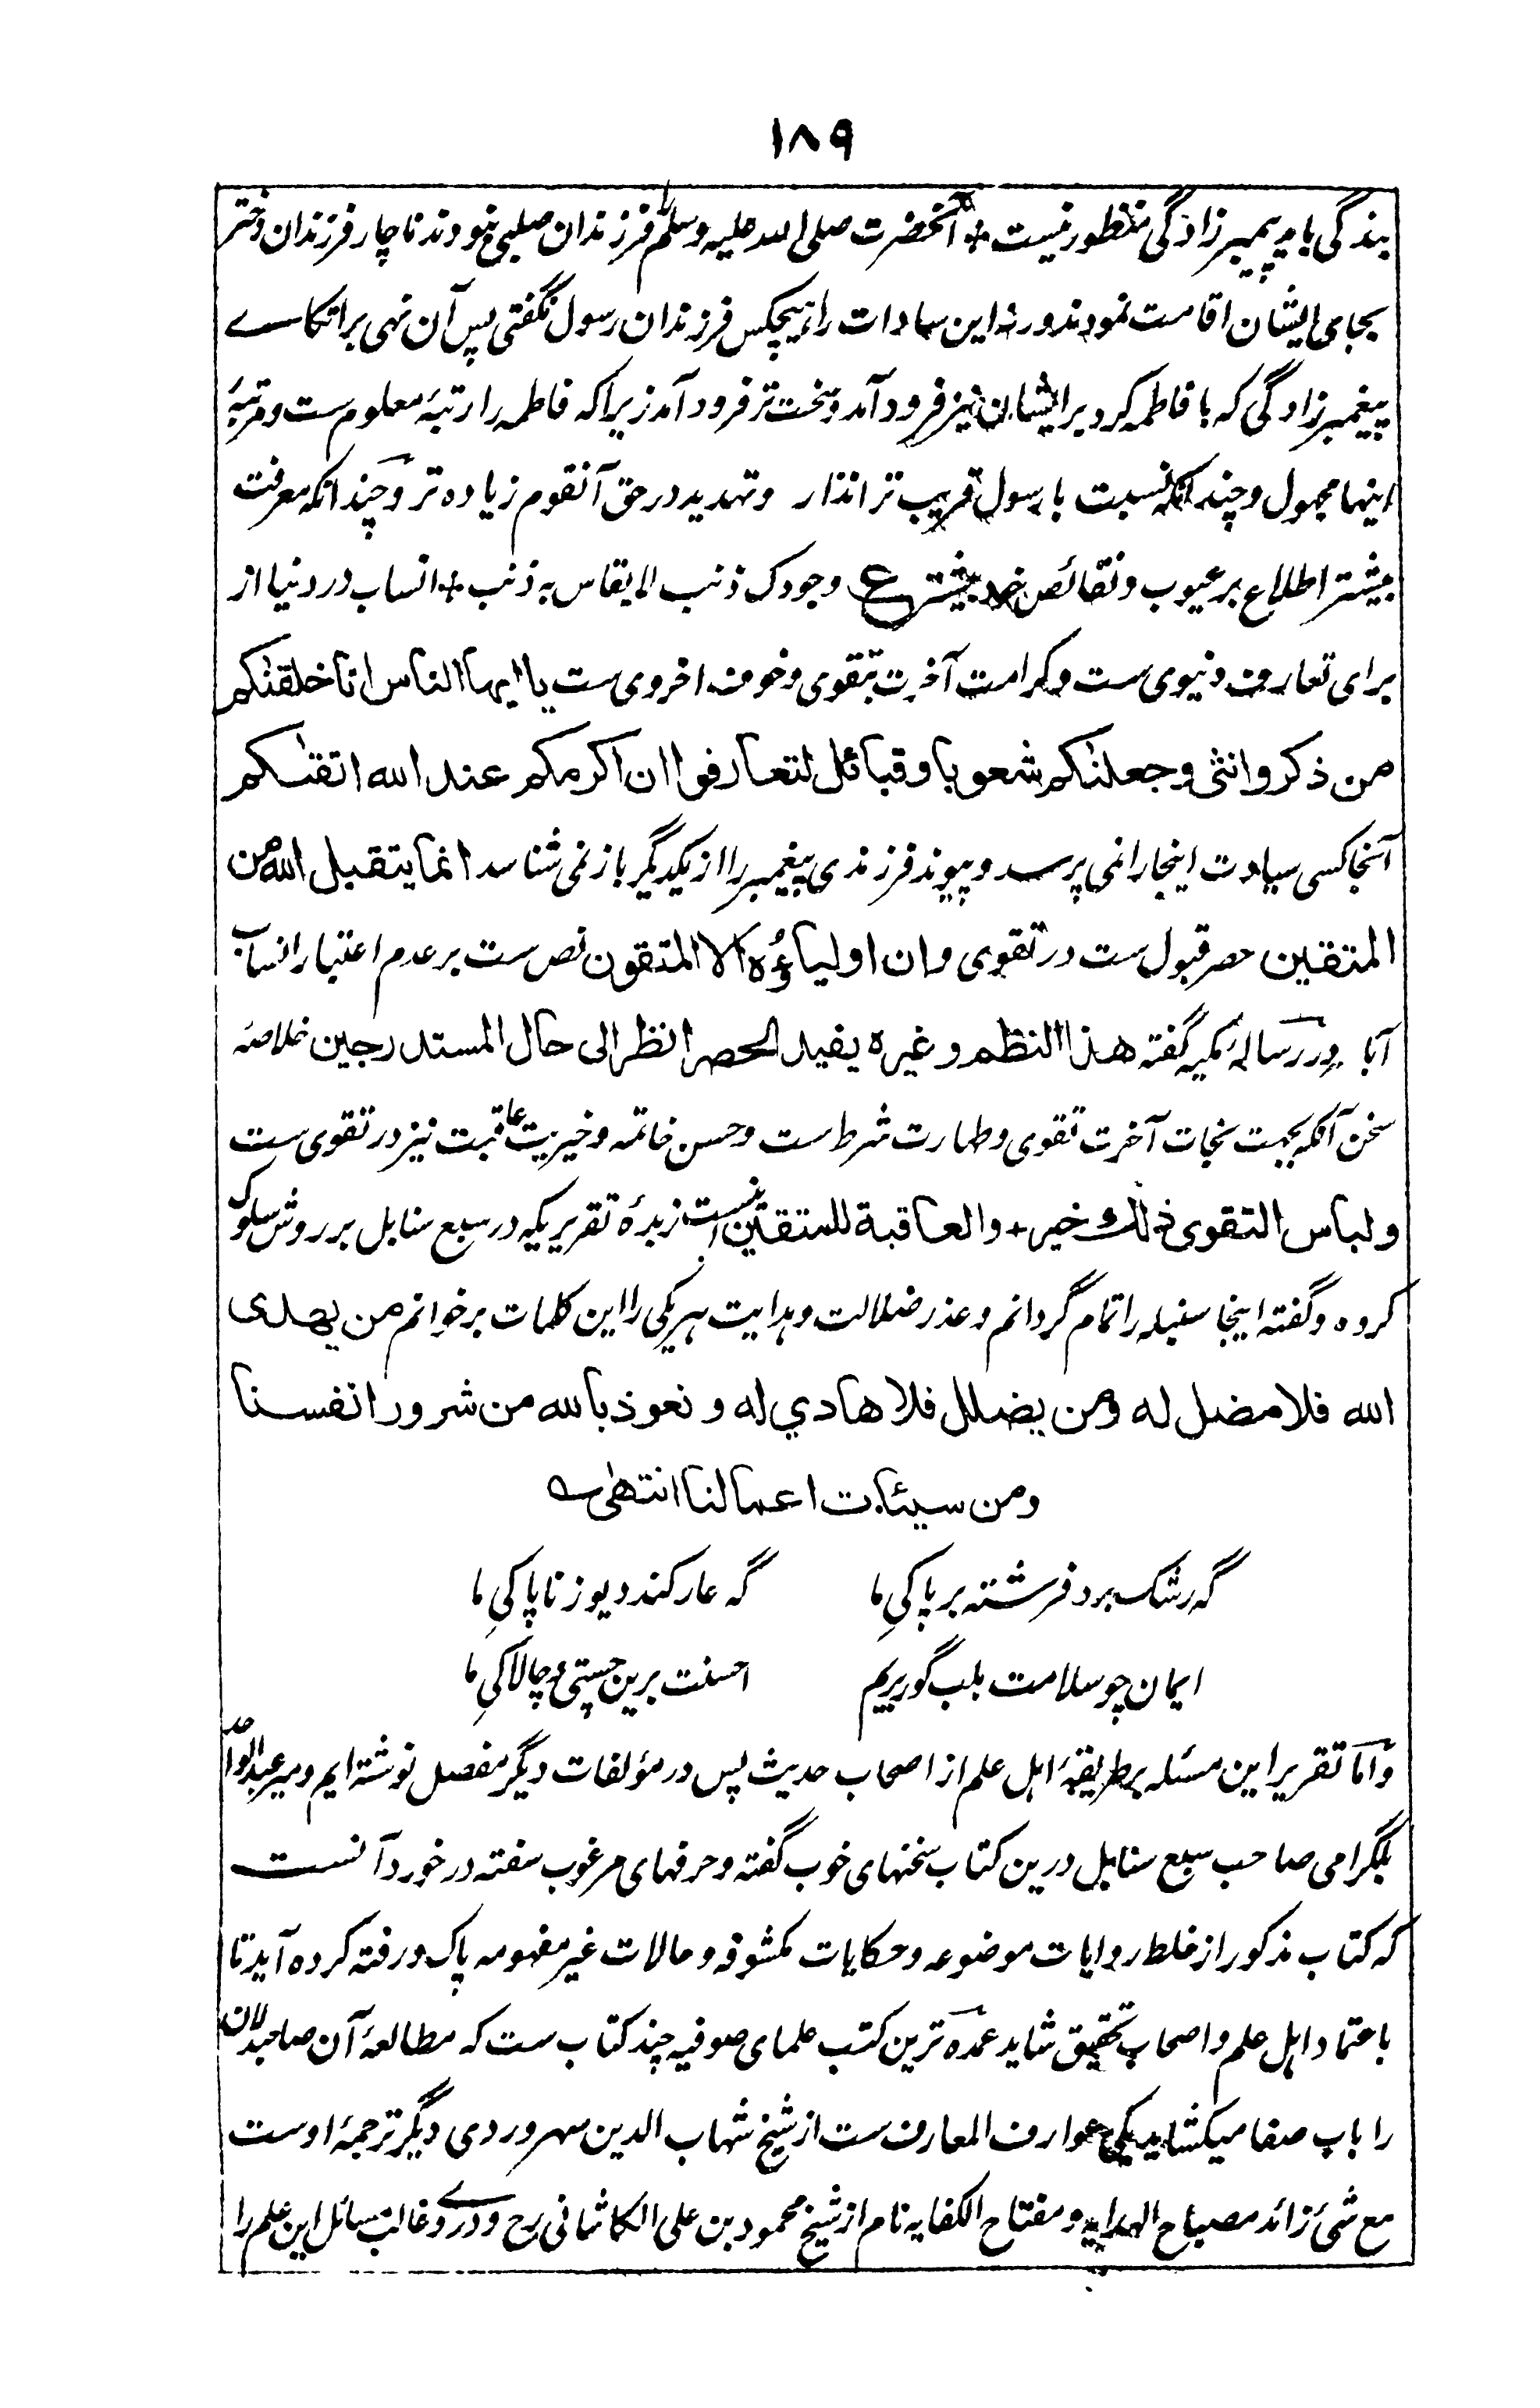 ۱۸۹
بندگی باید پیمبرزادگی منظور نیست + آنحضرت صلی الله علیه وسلم را فرزندان صلبی نبودند ناچار فرزندان دختر
بجای ایشان اقامت نمودند ورنه این سادات را هیچکس فرزندان رسول نگفتی پس آن نهی بر اتکاے
پیغمبرزادگی که با فاطمه کرد بر ایشان نیز فرود آمد و سخت تر فرود آمد زیرا که فاطمه را رتبۂ معلوم ست و مرتبۂ
اینها مجهول و چندانکه نسبت با رسول قریب تر انذار و تهدید در حق آنقوم زیاده تر و چندانکه معرفت
بیشتر اطلاع بر عیوب و نقائص خود بیشتر ع وجودک ذنب لا یقاس به ذنب + انساب در دنیا از
برای تعارف دنیوی ست و کرامت آخرت بتقوی و خوف اخروی ست یا ایها الناس انا خلقنکم
من ذکر وانثی وجعلنکم شعوبا وقبائل لتعارفوا ان اکرمکم عند الله اتقکم
آنجا کسی سیادت اینجا را نمی پرسد و پیوند فرزندی پیغمبر را از یکدیگر باز نمی شناسد انما یتقبل الله من
المتقین حصر قبول ست در تقوی وان اولیاؤه الا المتقون نص ست بر عدم اعتبار انساب
آبا و در رسالۂ مکیه گفته هذا النظم وغیره یفید الحصر انظر الی حال المستدرجین خلاصۂ
سخن آنکه بجهت نجات آخرت تقوی و طهارت شرط ست و حسن خاتمه و خیریت عاقبت نیز در تقوی ست
ولباس التقوی ذلک خیر + والعاقبة للمتقین اینست زبدۂ تقریریکه در سبع سنابل بر روش سلوک
کرده و گفته اینجا سنبله را تمام گردانم و عذر ضلالت و هدایت هر یکی را این کلمات برخوانم من یهدی
الله فلا مضل له ومن یضلل فلا هادي له ونعوذ بالله من شرور انفسنا
ومن سیئات اعمالنا انتهی ے
گه رشک برد فرشته بر پاکیِ ما گه عار کند دیو ز ناپاکیِ ما
ایمان چو سلامت بلب گور بریم احسنت برین چستی و چالاکیِ ما
و اما تقریر این مسئله بر طریقۂ اهل علم از اصحاب حدیث پس در مؤلفات دیگر مفصل نوشته ایم و میر عبد الواحد
بلگرامی صاحب سبع سنابل درین کتاب سخنهای خوب گفته و حرفهای مرغوب سفته در خورد آنست
که کتاب مذکور از خلط روایات موضوعه و حکایات مکشوفه و حالات غیر مفهومه پاک و رفته کرده آید تا
باعتماد اهل علم و اصحاب تحقیق شاید عمده ترین کتب علمای صوفیه چند کتاب ست که مطالعۂ آن صاحبدلان
را باب صفا میکشاید یکی عوارف المعارف ست از شیخ شهاب الدین سهروردی دیگر ترجمۂ اوست
مع شئ زائد مصباح الهدایه و مفتاح الکفایه نام از شیخ محمود بن علی الکاشانی رح و درے و غالب مسائل این علم را